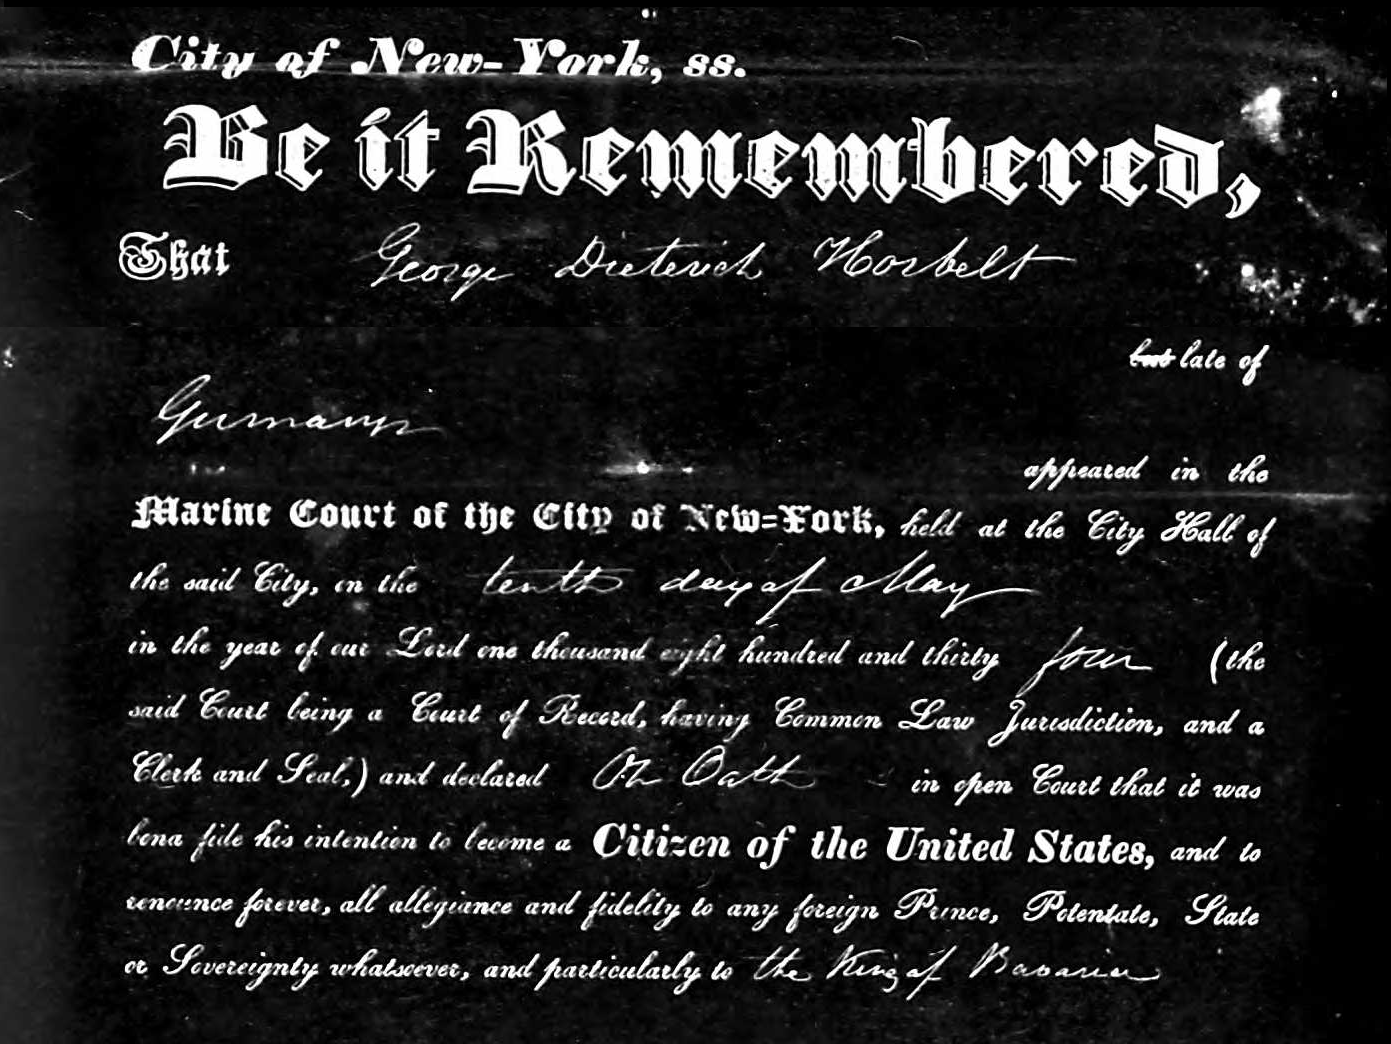 City of New-York, ss.
Be it Remembered,
That George Dieterich Horbelt
late of
Germany
appeared in the
Marine Court of the City of New=York, held at the City Hall of
the said City, on the tenth day of May
in the year of our Lord one thousand eight hundred and thirty four (the
said Court being a Court of Record, having Common Law Jurisdiction, and a
Clerk and Seal,) and declared On Oath in open Court that it was
bona fide his intention to become a Citizen of the United States, and to
renounce forever, all allegiance and fidelity to any foreign Prince, Potentate, State
or Sovereignty whatsoever, and particularly to the King of Bavaria